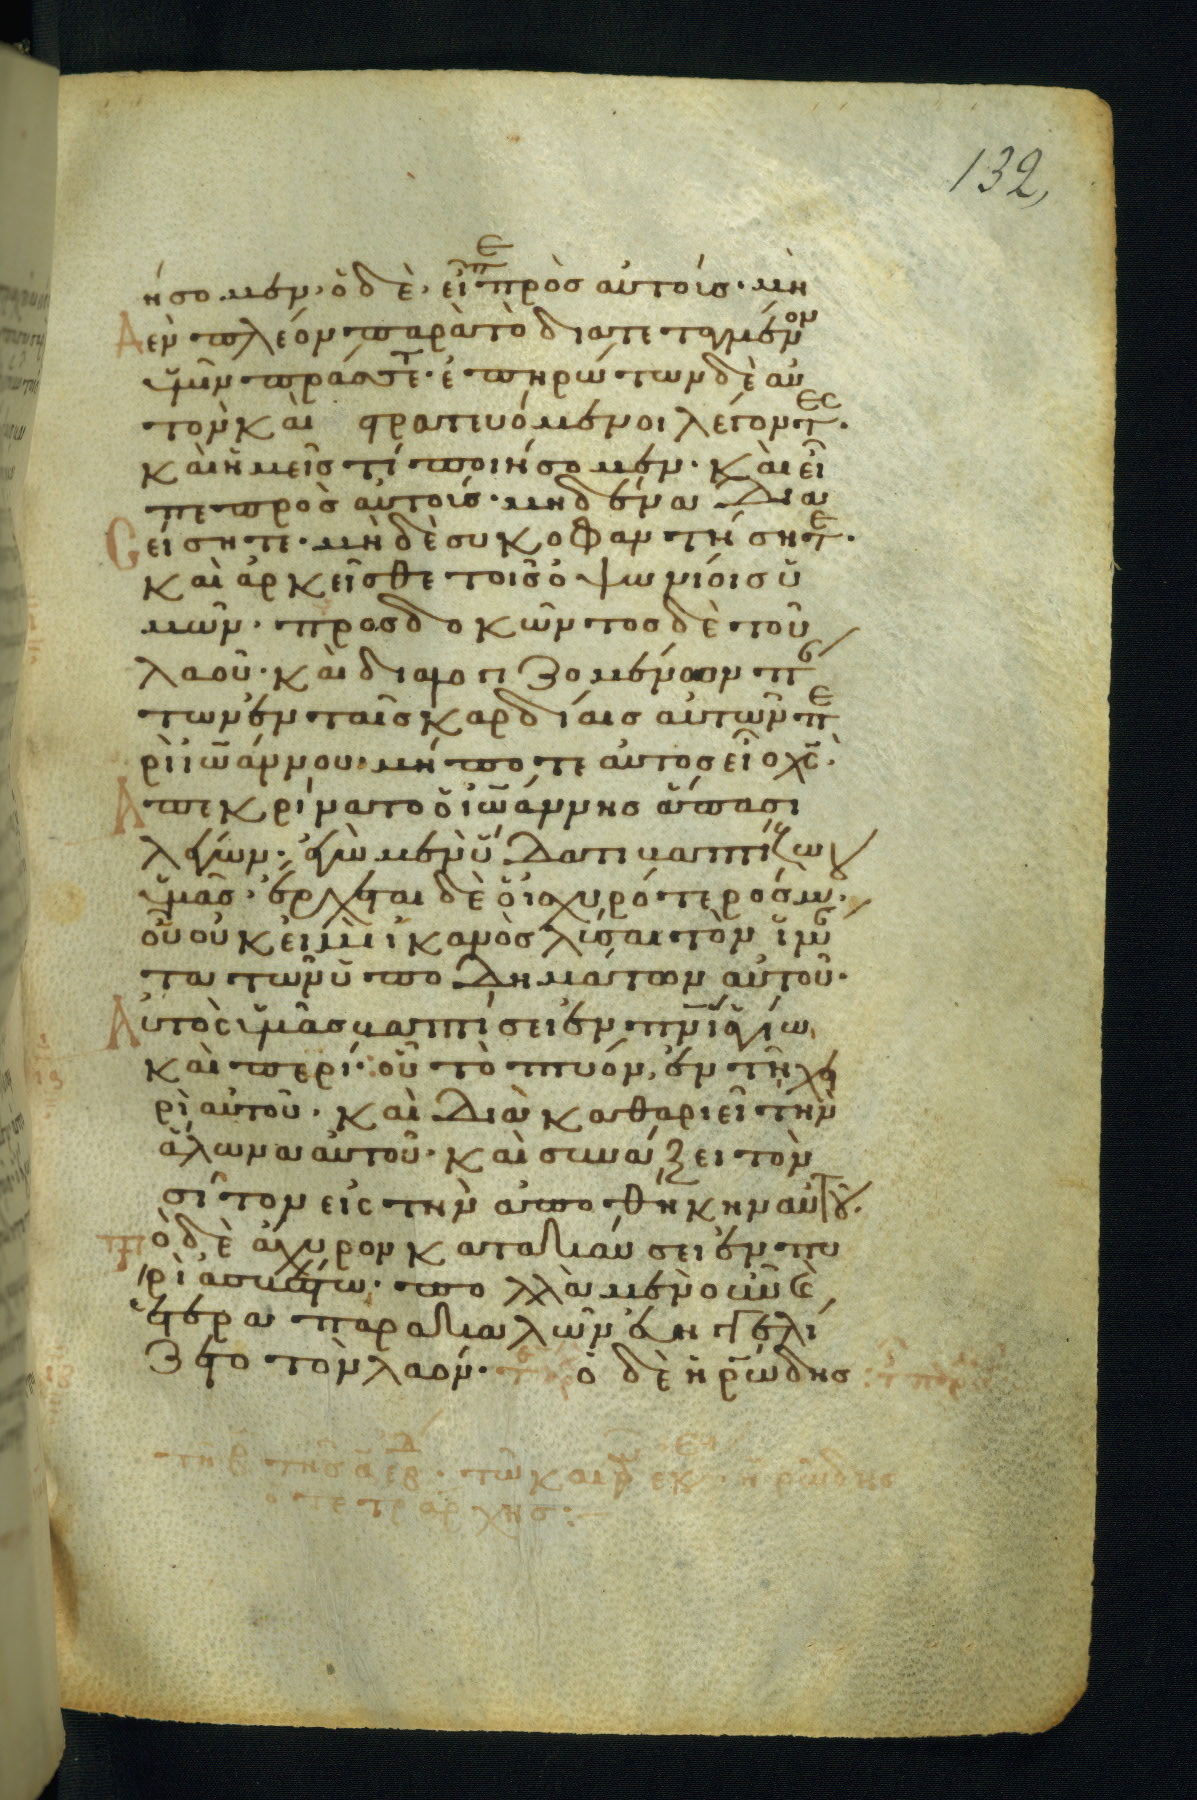 132,
ήσομεν· ὁ δὲ· εἶπε πρὸσ αὐτούσ· μη
Δὲν πλέον παρὰ τὸ διατεταγμένον
ὑμῖν πράσσετε· ἐπηρώτων δὲ αὐ
τὸν καὶ στρατευόμενοι λέγοντες·
καὶ ἡμεῖσ τί ποιήσομεν· καὶ εἶ
πε προσ αὐτούσ· μηδένα δια
Σείσητε· μὴ δὲ συκοφαντήσητε·
καὶ ἀρκεῖσθε τοῖσ ὀψωνίοισ ὑ
μῶν· προσδοκῶντοσ δὲ τοῦ
λαοῦ· καὶ διαλογιζομένων πάν
των ἐν ταῖσ καρδίαισ αὐτῶν πε
ρὶ ἰωάννου· μήποτε αὐτοσ εἴη ὁ χς·
Ἀπεκρίνατο ὁ ἰωάννησ ἅπασι
λέγων· ἐγὼ μὲν ὕδατι βαπτίζω
ὑμᾶσ· ἔρχεται δὲ ὁ ἰσχυρότεροσ μου·
οὗ οὐκ εἰμὶ ἱκανὸσ λῦσαι τὸν ἱμάν
τα τῶν ὑποδημάτων αὐτοῦ·
Αὐτὸς ὑμᾶσ βαπτίσει ἐν πνι ἁγίω
καὶ πυρί· οὗ τὸ πτυόν, ἐν τῆ χει
ρὶ αὐτοῦ· καὶ διακαθαριεῖ τὴν
ἅλωνα αὐτοῦ· καὶ συνάξει τὸν
σῖτον εἰς τὴν ἀποθήκην αὐτοῦ·
Τὸ δὲ ἄχυρον κατακαύσει ἐν πυ
ρὶ ἀσβέστω· πολλὰ μὲν οὖν καὶ
ἕτερα παρακαλῶν εὐηγγελί
ζετο τὸν λαόν· ὁ δὲ ἡρώδησ
τῶ καιρῶ ἐκ· ἡρώδησ
ὁ τετράρχησ: